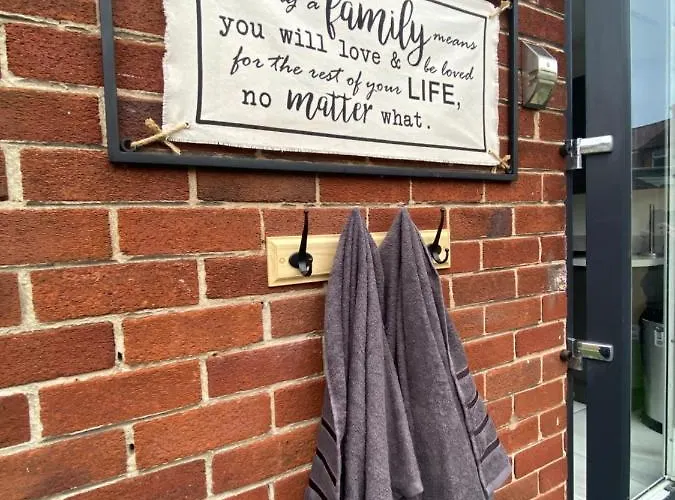 a family means
you will love & be loved
for the rest of your LIFE,
no matter what.